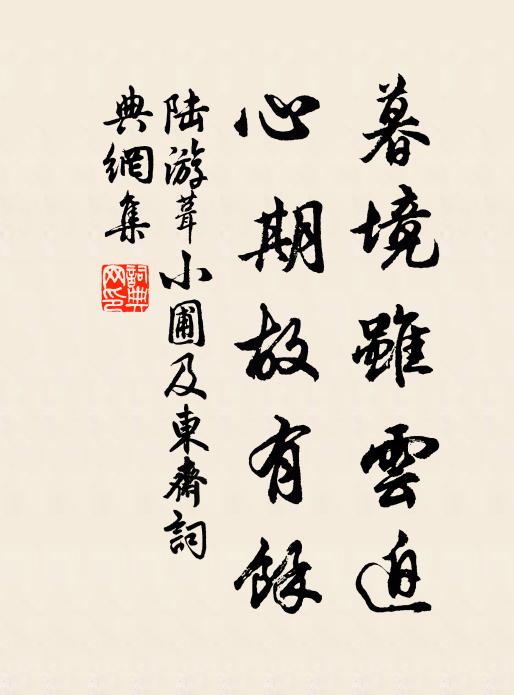 暮境雖雲迫
心期故有餘
陸游葺小圃及東齋詞
典網集
詞典網印